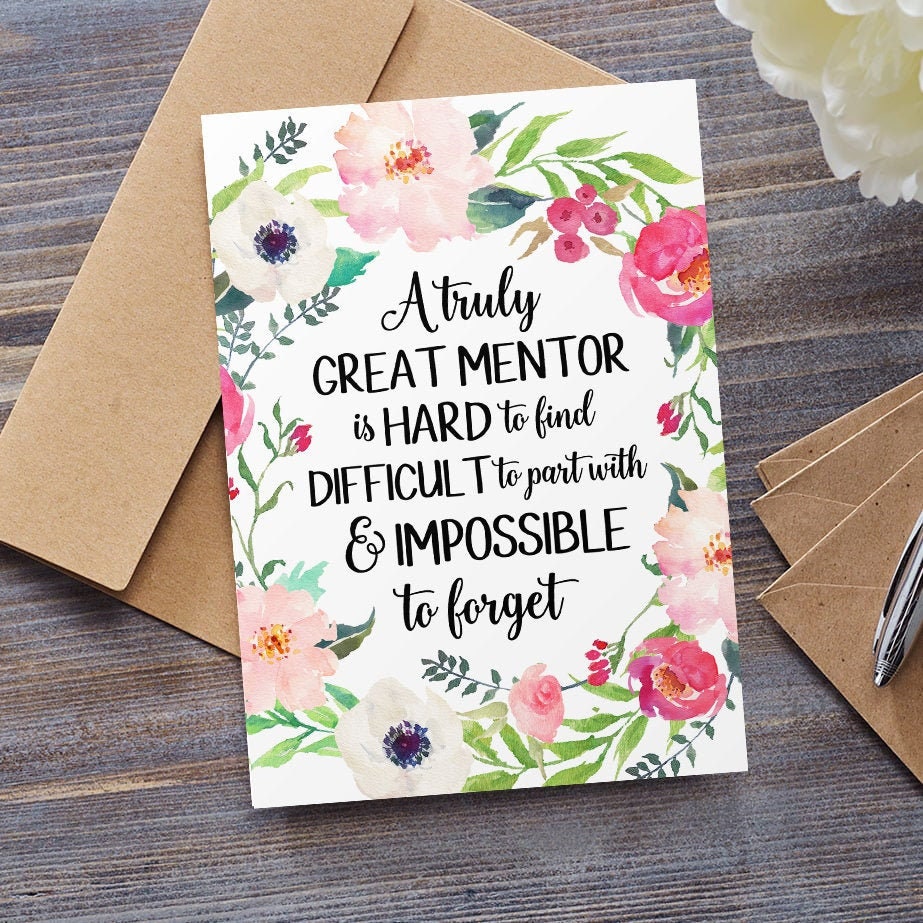 A truly
GREAT MENTOR
is HARD to find
DIFFICULT to part with
& IMPOSSIBLE
to forget